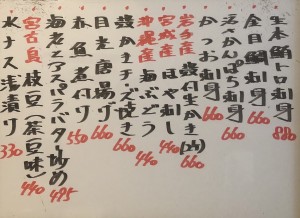 生本鮪トロ刺身 880
金目鯛刺身 660
えさんばら刺身 660
かつお刺身 660
岩手産 殻付生かき(山) 660
宮城産 ほや刺し 440
沖縄産 海ぶどう 440
殻かきチーズ焼き 660
目光唐揚げ 660
赤魚煮付け 550
海老とアスパラバター炒め 495
宮古島 枝豆(茶豆味) 440
水ナス浅漬け 330